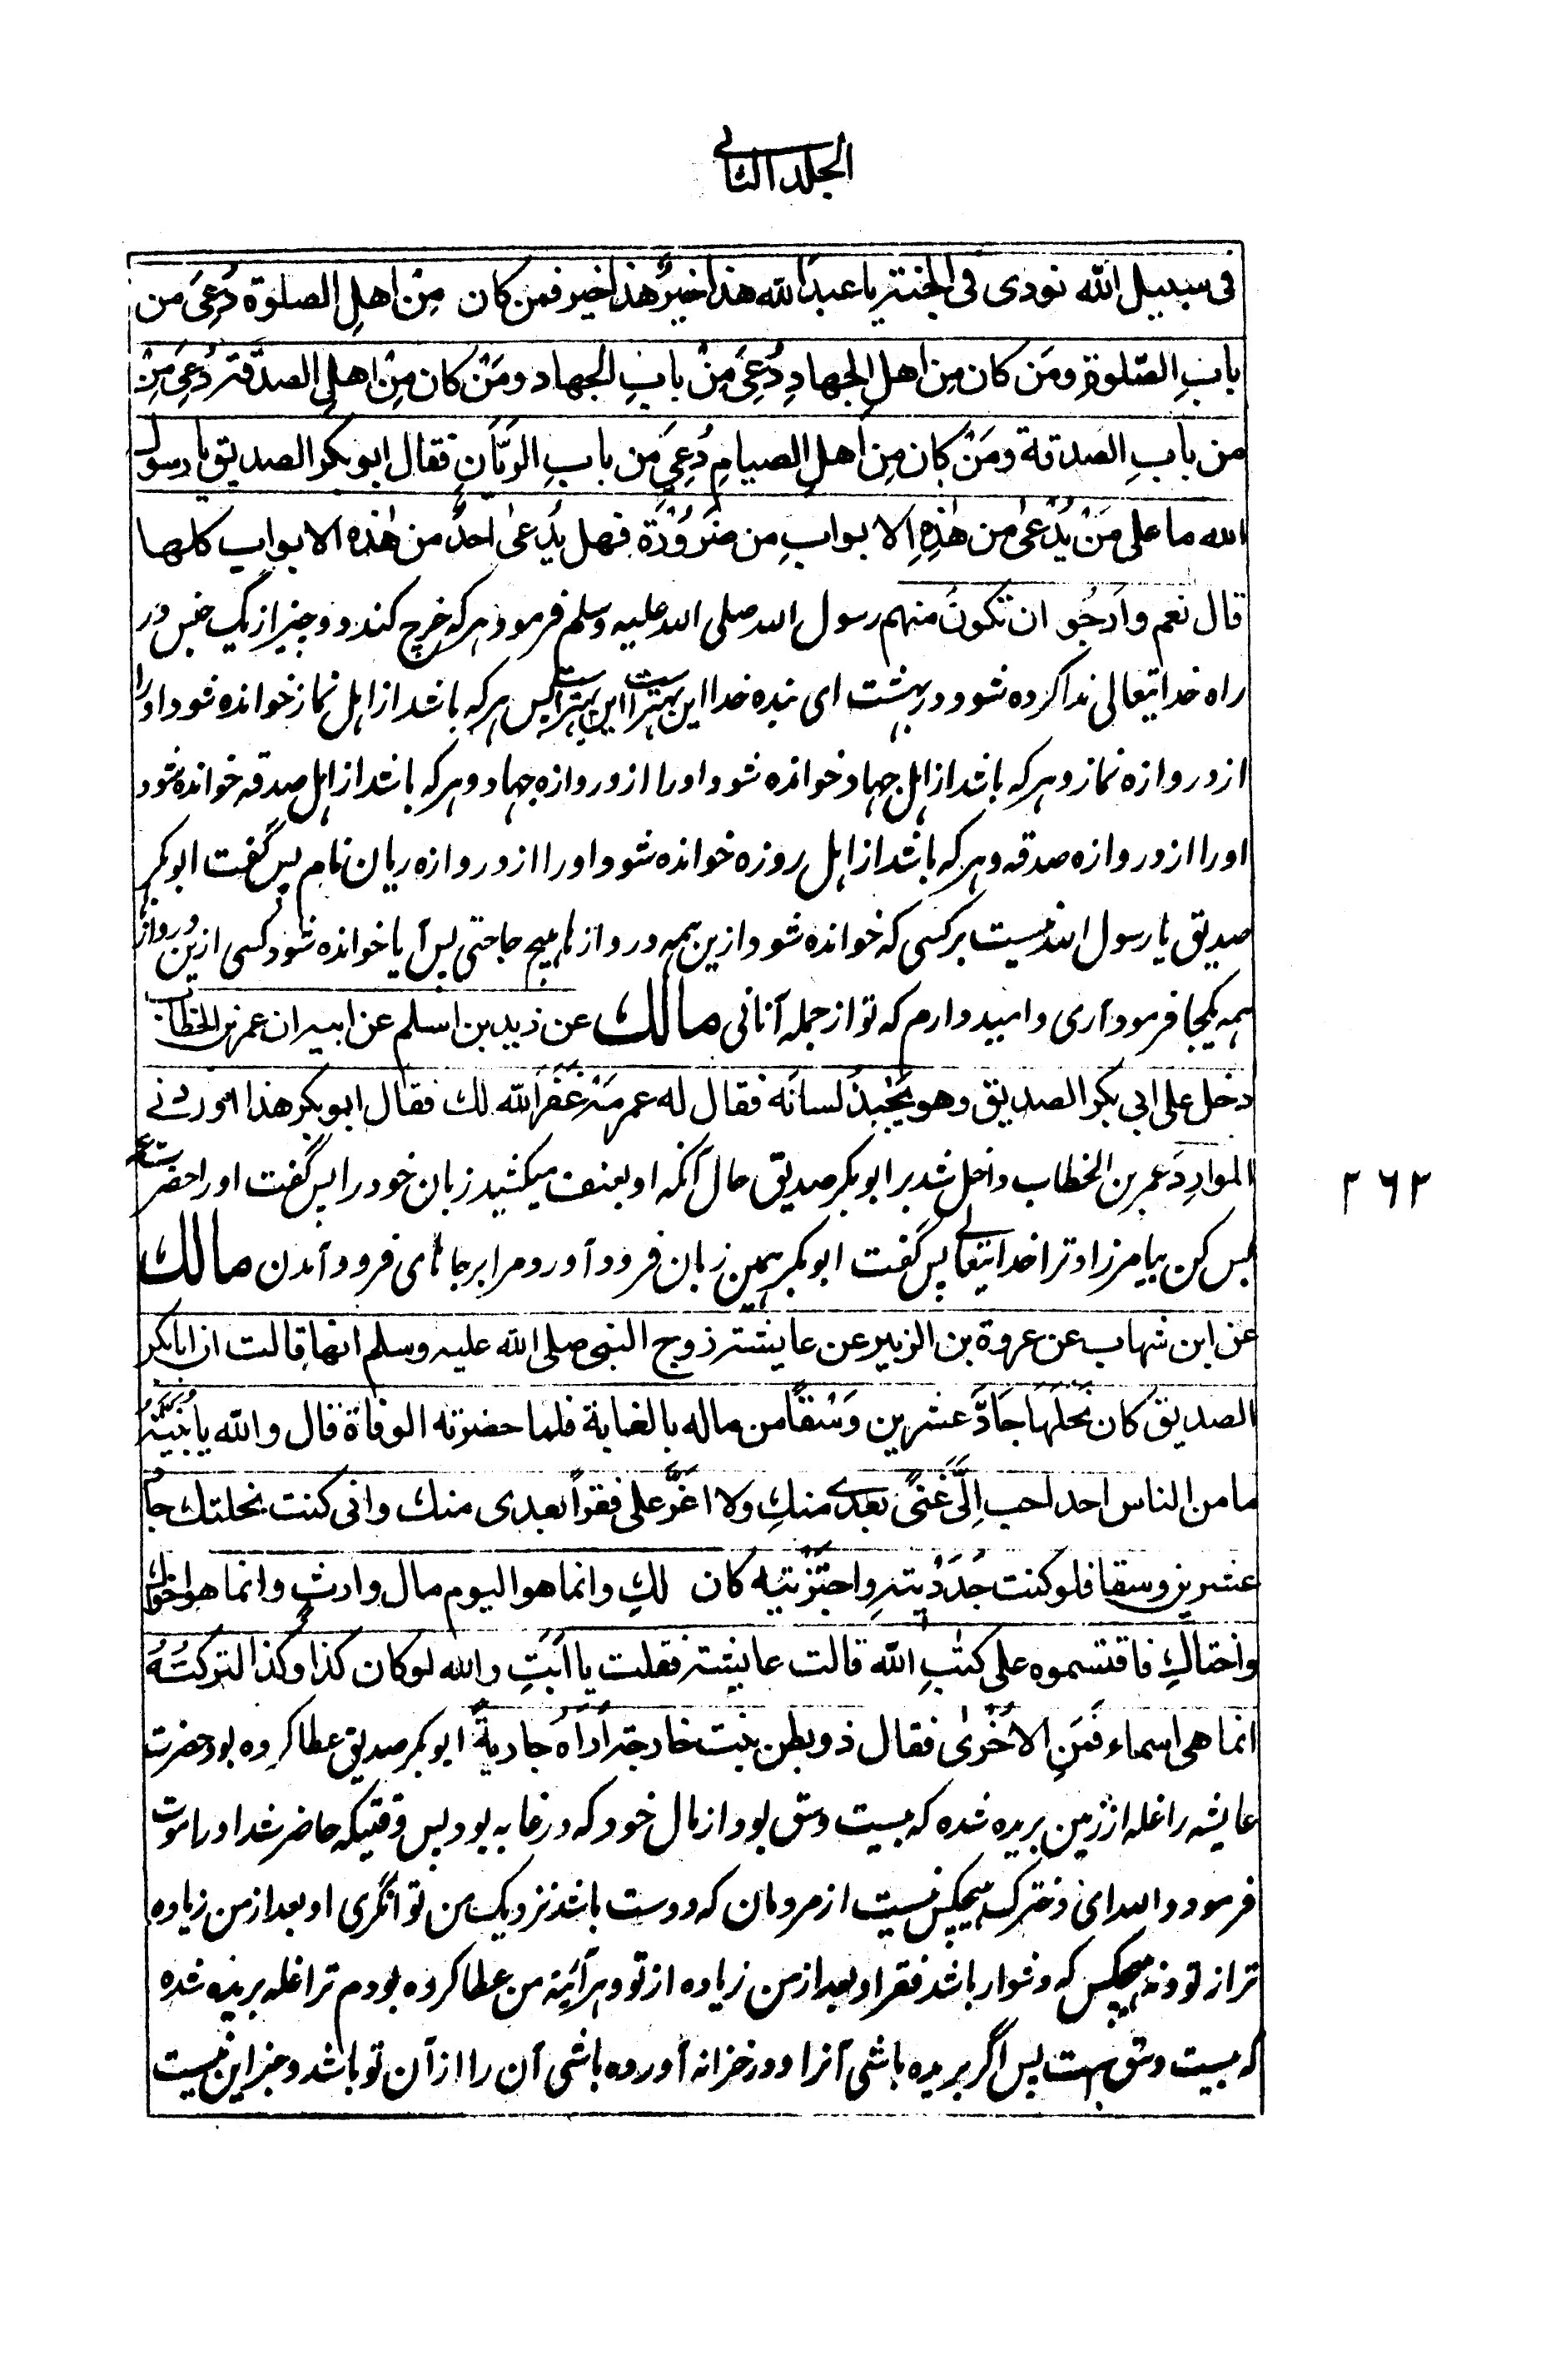 الجلد الثانی
فی سبیل الله نودی فی الجنة یا عبد الله هذا خیرٌ هذا خیر فمن کان مِنْ اهلِ الصلوة دُعِیَ من
بابِ الصّلوةِ ومَن کان مِن اهلِ الجهادِ دُعِیَ مِنْ بابِ الجهاد ومَنْ کان مِنْ اهلِ الصدقة دُعِیَ مِنْ
من بابِ الصدقة ومَنْ کان مِن اهلِ الصیامِ دُعِیَ من بابِ الرَیَّانِ فقال ابو بکر الصدیق یا رسول
الله ما علی مَنْ یُدْعیٰ من هٰذِهِ الابوابِ من ضَرُوْرَة فهل یُدعیٰ احدٌ من هٰذه الابواب کلها
قال نعم وارْجُو ان تکونَ منهم رسول الله صلی الله علیه وسلم فرمود هرکه خرچ کند دو چیز از یک جنس در
راه خدایتعالی ندا کرده شود در بهشت ای بنده خدا این بهترست این بهترست پس هرکه باشد از اهل نماز خوانده شود او را
از دروازه نماز و هرکه باشد از اهل جهاد خوانده شود او را از دروازه جهاد و هرکه باشد از اهل صدقه خوانده شود
اورا از دروازه صدقه و هرکه باشد از اهل روزه خوانده شود اورا از دروازه ریان نام پس گفت ابوبکر
صدیق یا رسول الله نیست بر کسی که خوانده شود ازین همه دروازها هیچ حاجتی پس آیا خوانده شود کسی ازین دروازها
همه یکجا فرمود آری و امیدوارم که تو از جمله آنانی مالك عن زید بن اسلم عن ابیه ان عمر بن الخطاب
دخل علی ابی بکر الصدیق وهو یَجْبِذُ لسانَه فقال له عمر مَهْ غَفَرَ الله لك فقال ابو بکر هذا اوردنی
المواردَ عمر بن الخطاب داخل شد بر ابوبکر صدیق حال آنکه او بعنف میکشید زبان خود را پس گفت اورا حضرت عمر
بس کن بیامرزاد ترا خدایتعالی پس گفت ابوبکر همین زبان فرود آورد مرا بر جاهای فرود آمدن مالك
عن ابن شهاب عن عروة بن الزبیر عن عایشة زوج النبی صلی الله علیه وسلم انها قالت ان ابابکر
الصدیق کان نَحَلَهَا جَادَّ عشرین وَسْقًا من ماله بالغابة فلما حضرته الوفاة قال والله یا بُنَیَّةُ
ما من الناس احد احب اِلَیَّ غِنًی بعدی منكِ ولا اعَزُّ علی فقرًا بعدی منك وانی کنت نحلتك جادّ
عشرین وسقا فلو کنت جَدَدْتیهِ واحتَزْتیه کان لكِ وانما هو الیوم مال وارثٍ وانما هو اخواك
واختاكِ فاقتسموه علی کتٰبِ الله قالت عایشة فقلت یا اَبَتِ والله لو کان کذا وکذا لترکتُهُ
انما هی اسماء فَمَنِ الاُخْریٰ فقال ذو بطن بنت خارجة اُرَاهُ جاریةً ابوبکر صدیق عطا کرده بود حضرت
عایشه را غله از زمین بریده شده که بیست وسق بود از مال خود که در غابه بود پس وقتیکه حاضر شد اورا موت
فرمود والله ای دخترک هیچکس نیست از مردمان که دوست باشد نزدیک من توانگری او بعد از من زیاده
تر از تو و نه هیچکس که دشوار باشد فقر او بعد از من زیاده از تو و هرآئینه من عطا کرده بودم ترا غله بریده شده
که بیست وسق هست پس اگر بریده باشی آنرا و در خزانه آورده باشی آن را از آن تو باشد و جز این نیست
۲۶۲